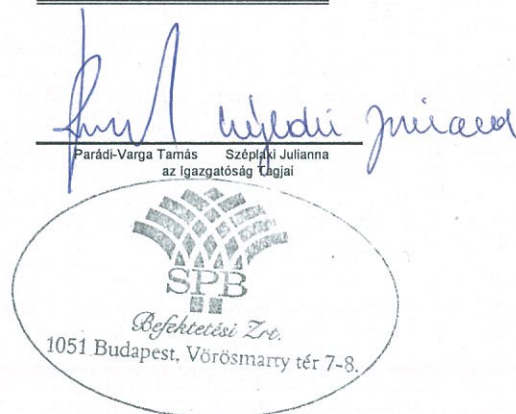 Parádi-Varga Tamás Széplaki Julianna
az Igazgatóság Tagjai
SPB
Befektetési Zrt.
1051 Budapest, Vörösmarty tér 7-8.